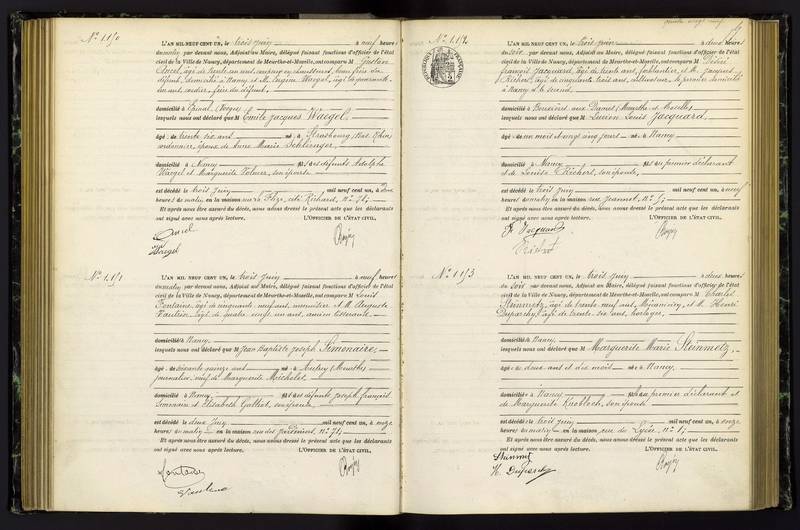 N° 1150
L'AN MIL NEUF CENT UN, le trois Juin à neuf heures
du matin par devant nous, Adjoint au Maire, délégué faisant fonctions d'officier de l'état
civil de la Ville de Nancy, département de Meurthe-et-Moselle, ont comparu M Gustave
âgé de trente un ans, beau frère du
défunt, domicilié à Nancy et M. Eugène Waigel, âgé de quarante
un ans, cordier, frère du défunt,
domicilié à Epinal (Vosges)
lesquels nous ont déclaré que M Emile Jacques Waigel,
âgé de trente six ans né à Strasbourg (Bas Rhin)
cordonnier, époux de Anne Marie Schlinger,
domicilié à Nancy fils des défunts Adolphe
Waigel et Marguerite son épouse
est décédé le trois Juin mil neuf cent un, à deux
heures du matin en la maison cité Richard, n° 71
Et après nous être assuré du décès, nous avons dressé le présent acte que les déclarants
ont signé avec nous après lecture. L'OFFICIER DE L'ÉTAT CIVIL,
Waigel
N° 1151
L'AN MIL NEUF CENT UN, le trois Juin à neuf heures
du matin par devant nous, Adjoint au Maire, délégué faisant fonctions d'officier de l'état
civil de la Ville de Nancy, département de Meurthe-et-Moselle, ont comparu M Louis
Fontaine, âgé de cinquante neuf ans, menuisier et M. Auguste
Vautrin, âgé de quatre vingt un ans, ancien
domicilié à Nancy
lesquels nous ont déclaré que M Jean Baptiste Joseph Simonaire,
âgé de soixante quinze ans né à Autrey (Meurthe)
journalier, veuf de Marguerite Michelet,
domicilié à Nancy, fils des défunts Joseph François
Simonaire et Elisabeth Galliot, son épouse
est décédé le deux Juin mil neuf cent un, à onze
heures du matin en la maison rue des n° 71
Et après nous être assuré du décès, nous avons dressé le présent acte que les déclarants
ont signé avec nous après lecture. L'OFFICIER DE L'ÉTAT CIVIL,
Fontaine
Vautrin
N° 1152
L'AN MIL NEUF CENT UN, le trois Juin à deux heures
du soir par devant nous, Adjoint au Maire, délégué faisant fonctions d'officier de l'état
civil de la Ville de Nancy, département de Meurthe-et-Moselle, ont comparu M Désiré
François Jacquard, âgé de trente ans, ferblantier, et M. Jacques
Richert, âgé de cinquante trois ans, cultivateur, le premier domicilié
à Nancy et le second
domicilié à Bouxières aux Dames (Meurthe et Moselle)
lesquels nous ont déclaré que M Lucien Louis Jacquard,
âgé de un mois et vingt cinq jours né à Nancy
domicilié à Nancy fils du premier déclarant
et de Louise Richert, son épouse,
est décédé le trois Juin mil neuf cent un, à neuf
heures du matin en la maison rue Jeannot, n° 5
Et après nous être assuré du décès, nous avons dressé le présent acte que les déclarants
ont signé avec nous après lecture. L'OFFICIER DE L'ÉTAT CIVIL,
Jacquard
Richert
N° 1153
L'AN MIL NEUF CENT UN, le trois Juin à deux heures
du soir par devant nous, Adjoint au Maire, délégué faisant fonctions d'officier de l'état
civil de la Ville de Nancy, département de Meurthe-et-Moselle, ont comparu M Charles
Steinmetz, âgé de trente neuf ans, et M. Henri
Duparchy, âgé de trente six ans, horloger,
domicilié à Nancy,
lesquels nous ont déclaré que M Marguerite Marie Steinmetz,
âgée de deux ans et dix mois née à Nancy,
domiciliée à Nancy fille du premier déclarant et
de Marguerite Knobloch, son épouse
est décédée le trois Juin mil neuf cent un, à onze
heures du matin en la maison rue du Lycée, n° 1
Et après nous être assuré du décès, nous avons dressé le présent acte que les déclarants
ont signé avec nous après lecture. L'OFFICIER DE L'ÉTAT CIVIL,
Steinmetz
H. Duparchy